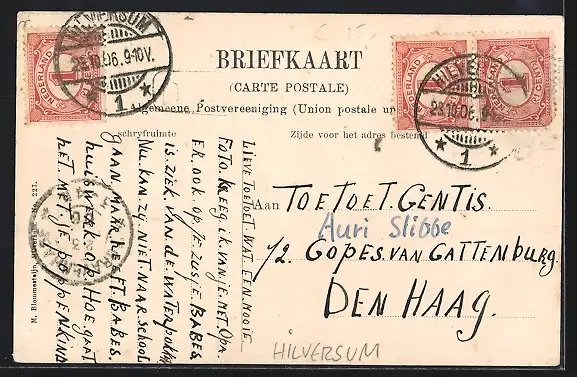 HILVERSUM
28.10.06. 9-10V.
1
NEDERLAND
1
BRIEFKAART
(CARTE POSTALE)
Algemeene Postvereeniging (Union postale
schryfruimte
Zijde voor het adres bestemd
LIEVE TOETOET. WAT EEN MOOIE
FOTO KREEG IK VAN JE. MET OPA
ER OOK. OP JE ZUSJE BABES
IS ZIEK VAN DE WATERPOKKEN
NU KAN ZIJ NIET NAAR SCHOOL
GAAN MAAR HEEFT BABES
HUISWERK OOK. HOE GAAT
HET MET JE POPPENKIND
Aan TOETOET. GENTIS.
Auri Slibbe
72. GOPES. VAN CATTENBURG.
DEN HAAG.
HILVERSUM
M. Blommesteijn, Hilversum. No. 227.
HILVERSUM
28.10.06. 9-10V.
1
NEDERLAND
1